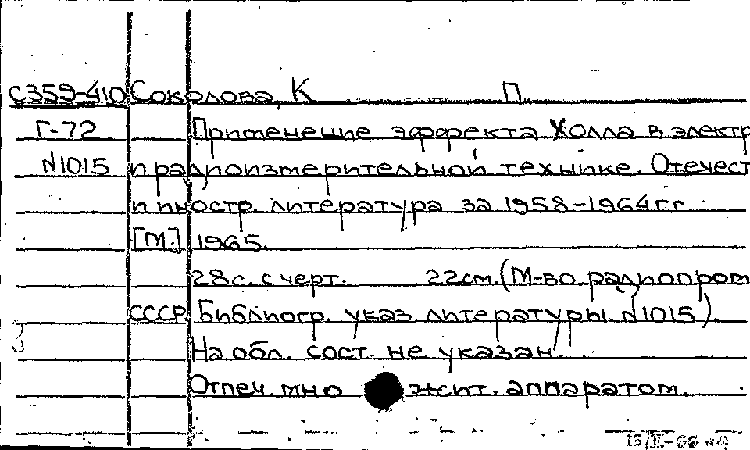 С359-410 Соколова, К П.
Г-72 Применение эффекта Холла в электр
N1015 и радиоизмерительной технике. Отечест
и иностр. литература за 1958-1964гг.
[М.] 1965.
28с. с черт. 22см. (М-во радиопром
СССР. Библиогр. указ. литературы. N1015).
На обл. сост. не указан.
Отпеч. множит. аппаратом.